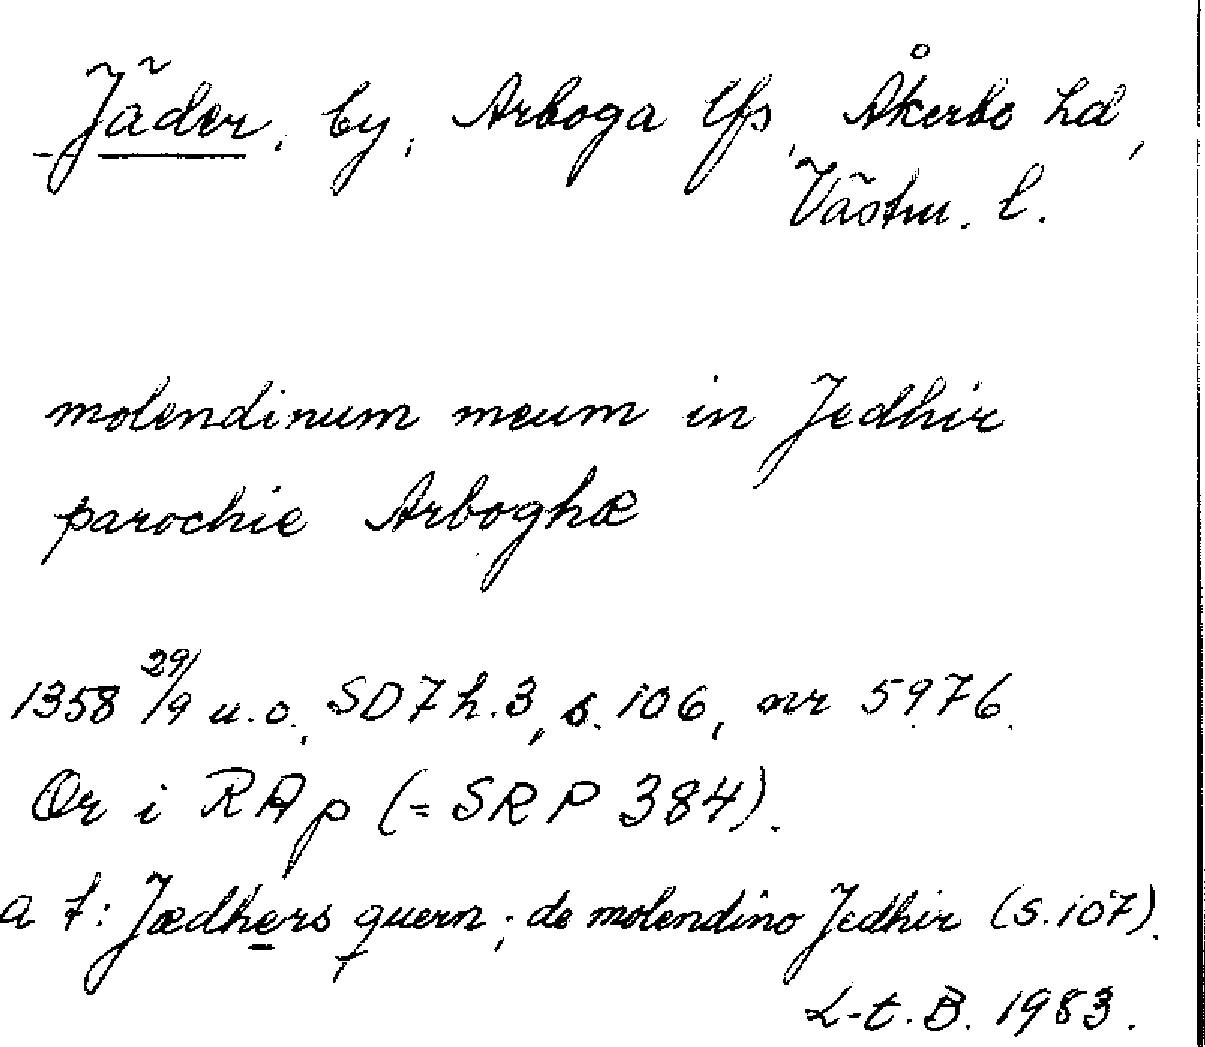 Jäder, by, Arboga lfs, Åkerbo hd,
Västm. l.
molendinum meum in Jedhir
parochie Arboghæ
1358 29/9 u.o., SD 7 h. 3, s. 106, nr 5976.
Or i RAp (= SRP 384).
a t: Jædhers quern; de molendino Jedhir (s. 107).
L-t. B. 1983.